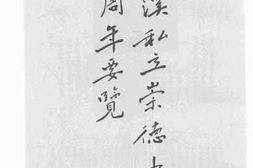 溪私立崇德
周年要覽